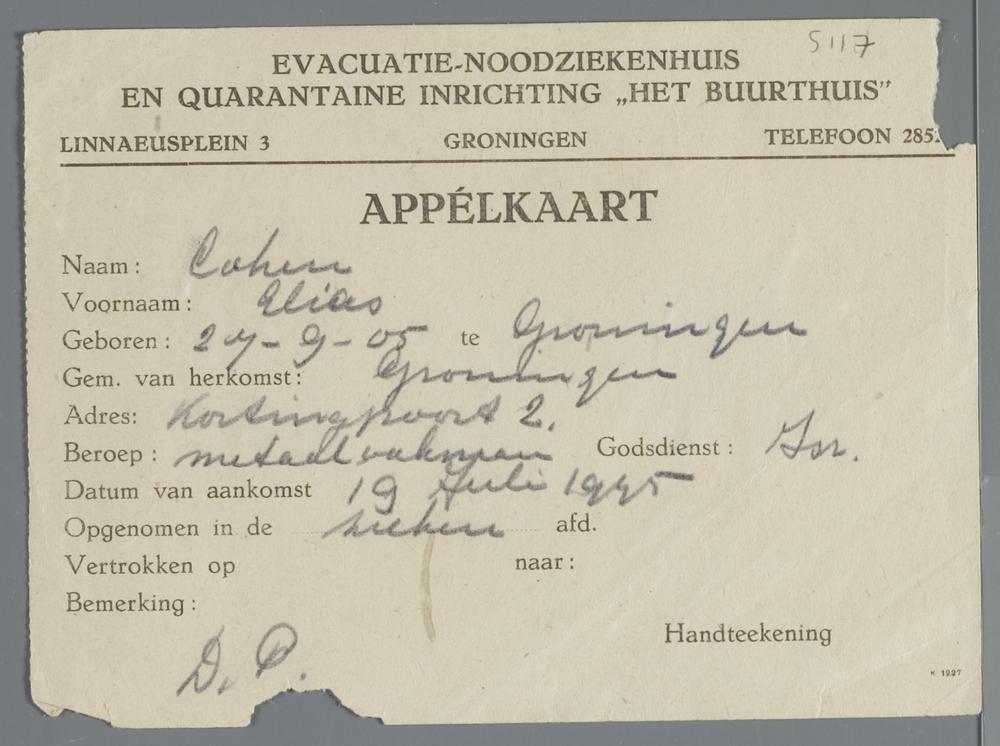 5117
EVACUATIE-NOODZIEKENHUIS
EN QUARANTAINE INRICHTING „HET BUURTHUIS”
LINNAEUSPLEIN 3 GRONINGEN TELEFOON 285
APPÉLKAART
Naam: Cohen
Voornaam: Elias
Geboren: 27-9-05 te Groningen
Gem. van herkomst: Groningen
Adres: Kortingpoort 2.
Beroep: metaalvakman Godsdienst: Isr.
Datum van aankomst 19 Juli 1945
Opgenomen in de zieken afd.
Vertrokken op naar:
Bemerking:
Handteekening
D. P.
K 1227